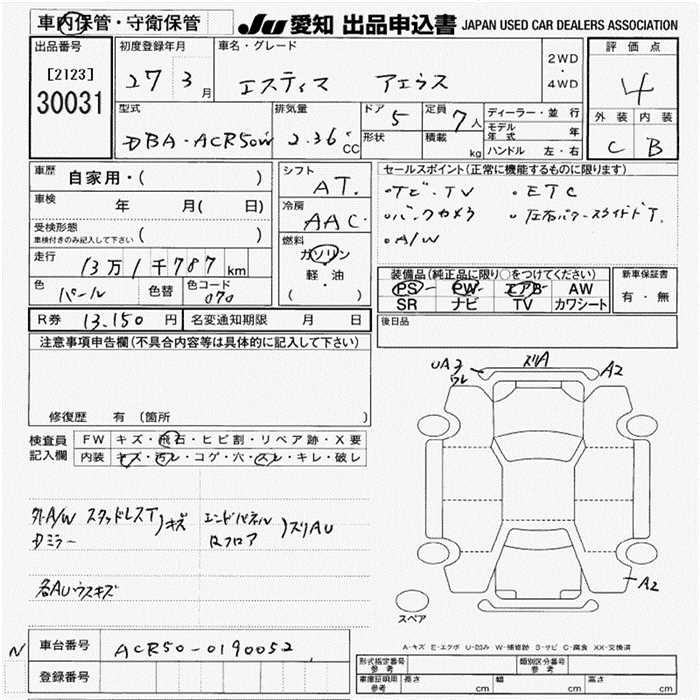 車内保管・守衛保管
JU 愛知 出品申込書 JAPAN USED CAR DEALERS ASSOCIATION
出品番号
[2123]
30031
初度登録年月
27 3月
車名・グレード
エスティマ アエラス
2WD
・
4WD
評価点
4
外装 内装
C B
型式
DBA-ACR50W
排気量
2.36 CC
ドア 5
形状
定員 7人
積載 kg
ディーラー・並行
モデル年式 年
ハンドル 左・右
車歴 自家用・( )
車検 年 月( 日)
受検形態
車検付きのみ記入して下さい ( )
走行 13万1千787km
色 パール 色替 色コード 070
シフト
AT.
冷房
AAC
燃料
ガソリン
軽・油
( ・ )
セールスポイント(正常に機能するものに限ります)
・ナビ・TV ・ETC
・バックカメラ ・左右パワースライドD.
・A/W
装備品(純正品に限り○をつけてください)
PS PW エアB AW
SR ナビ TV カワシート
新車保証書
有・無
R券 13,150円 名変通知期限 月 日
後日品
注意事項申告欄(不具合内容等は具体的に記入して下さい)
修復歴 有(箇所
検査員記入欄
FW キズ・飛石・ヒビ割・リペア跡・X要
内装 キズ・汚レ・コゲ・穴・スレ・キレ・破レ
外A/W スタッドレスT)キズ
Dミラー
エンドパネル)ズリAU
Rフロア
各AUウスキズ
UA3
ワレ
ズリA
A2
A2
スペア
A-キズ E-エクボ U-凹み W-補修跡 S-サビ C-腐食 XX-交換済
N
車台番号 ACR50-0190052
登録番号
形式指定番号
参考
類別区分番号
参考
車庫証明用
参考
長さ cm 幅 cm 高さ cm